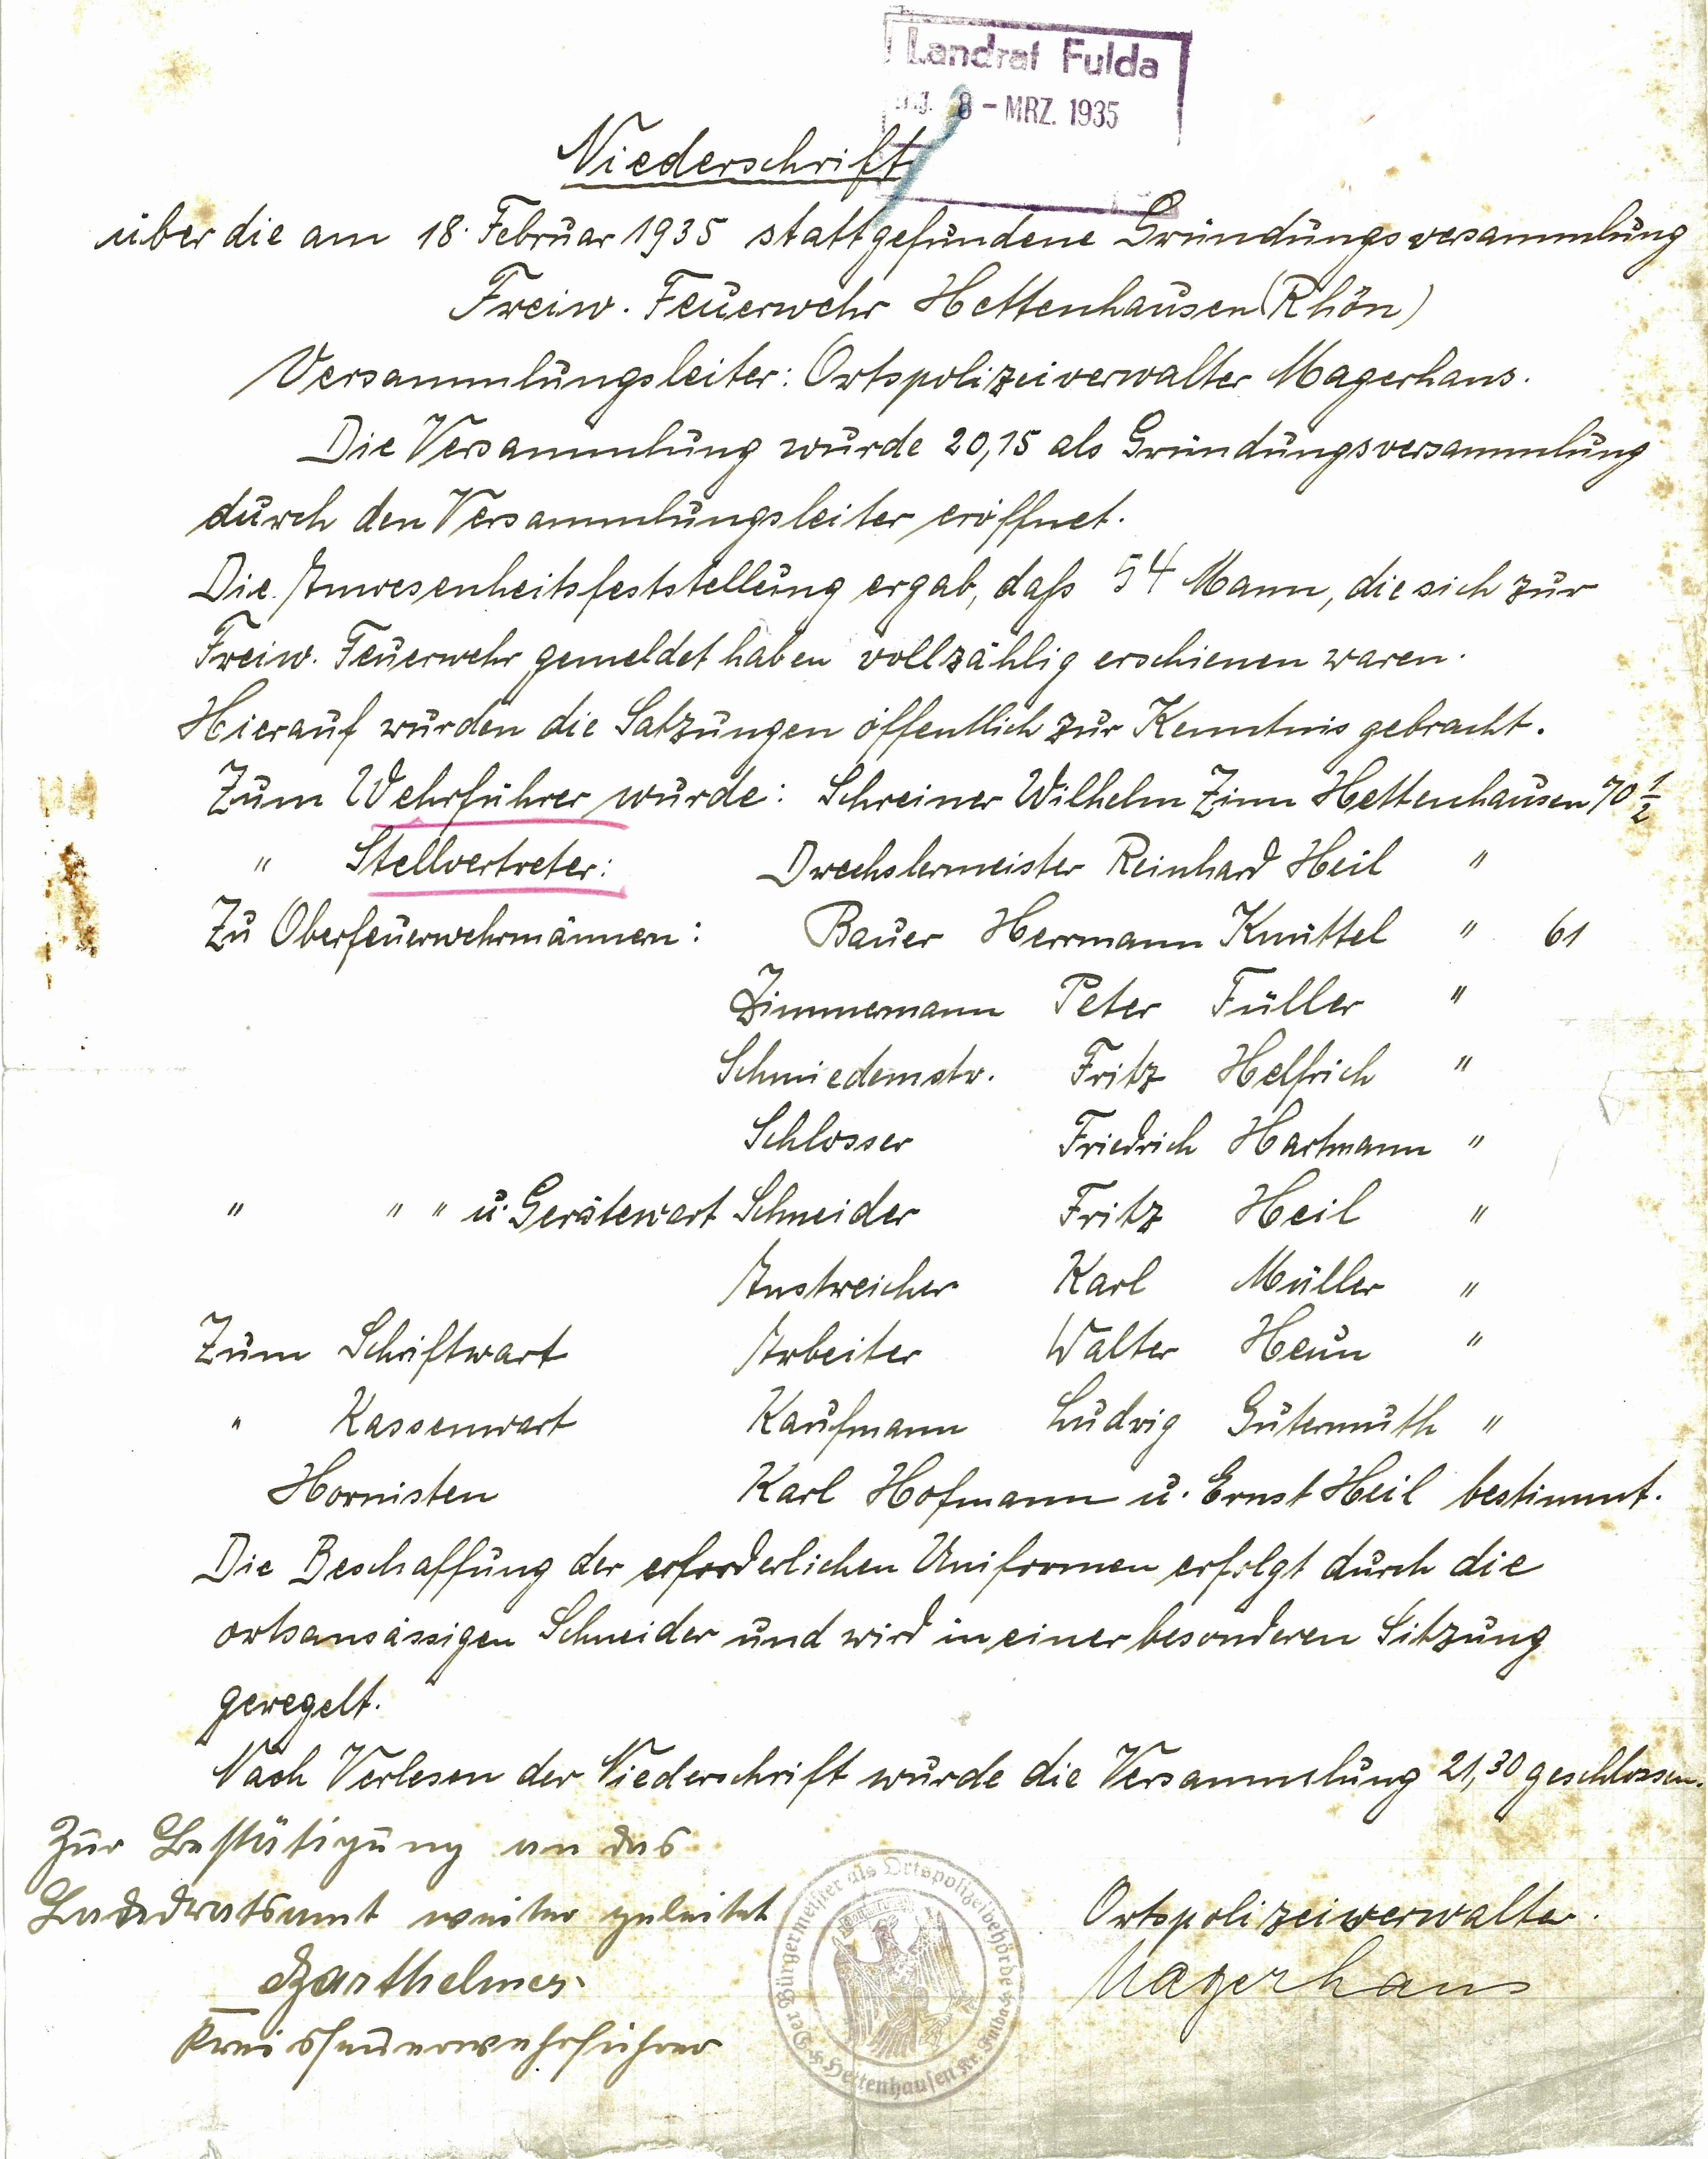 Landrat Fulda
8 - MRZ. 1935
Niederschrift
über die am 18. Februar 1935 stattgefundene Gründungsversammlung
Freiw. Feuerwehr Hettenhausen (Rhön)
Versammlungsleiter: Ortspolizeiverwalter Magerhans.
Die Versammlung wurde 20,15 als Gründungsversammlung
durch den Versammlungsleiter eröffnet.
Die Anwesenheitsfeststellung ergab, daß 54 Mann, die sich zur
Freiw. Feuerwehr gemeldet haben vollzählig erschienen waren.
Hierauf wurden die Satzungen öffentlich zur Kenntnis gebracht.
Zum Wehrführer wurde: Schreiner Wilhelm Zinn Hettenhausen 70 1/2
" Stellvertreter: Drechslermeister Reinhard Heil "
Zu Oberfeuerwehrmännern: Bauer Herrmann Knüttel " 61
Zimmermann Peter Füller "
Schmiedemstr. Fritz Helfrich "
Schlosser Friedrich Hartmann "
" " " u. Gerätewart Schneider Fritz Heil "
Anstreicher Karl Müller "
Zum Schriftwart Arbeiter Walter Heun "
" Kassenwart Kaufmann Ludwig Gutermuth "
Hornisten Karl Hofmann u. Ernst Heil bestimmt.
Die Beschaffung der erforderlichen Uniformen erfolgt durch die
ortsansässigen Schneider und wird in einer besonderen Sitzung
geregelt.
Nach Verlesen der Niederschrift wurde die Versammlung 21,30 geschlossen.
Zur Bestätigung an das
Landratsamt weiter geleitet
Barthelmes
Kreisfeuerwehrführer
Der Bürgermeister als Ortspolizeibehörde
Hettenhausen Kr. Fulda
Ortspolizeiverwalter.
Magerhans